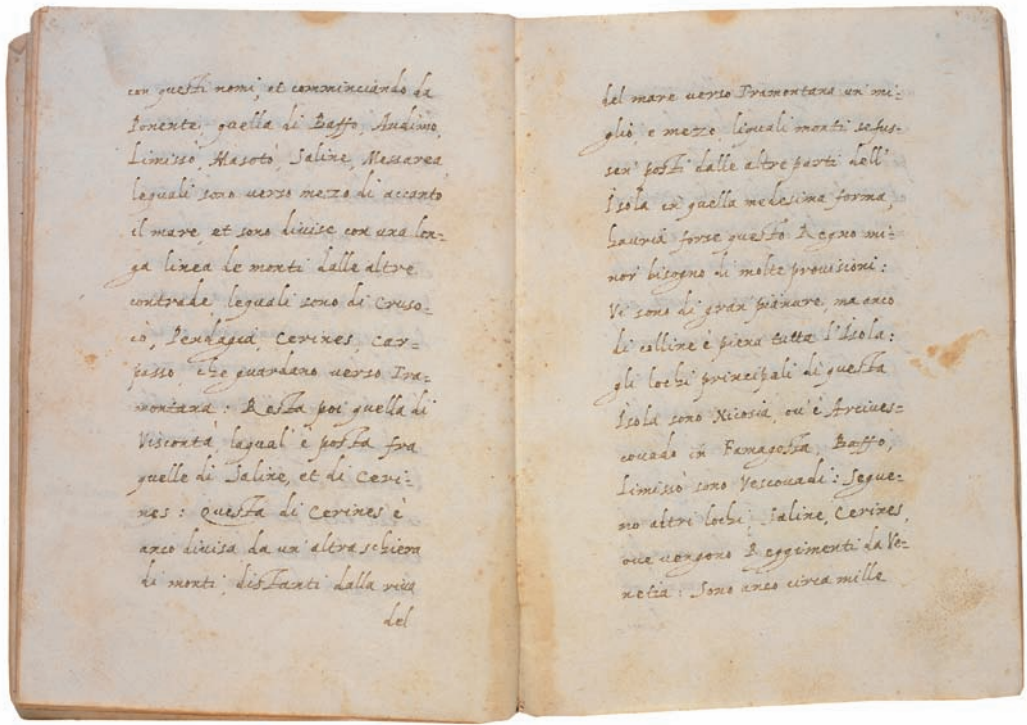 con questi nomi, et comminciando da
Ponente, quella di Baffo, Audimo,
Limissò, Masotò, Saline, Messarea,
lequali sono verso mezo di accanto
il mare, et sono divise con una lon=
ga linea de monti dalle altre
contrade, lequali sono di Cruso=
cò, Pendagia, Cerines, Car=
passo, che guardano verso Tra=
montana: Resta poi quella di
Viscontà, laqual' è posta fra
quelle di Saline, et di Ceri=
nes: Questa di Cerines è
anco divisa da un' altra schiera
di monti, distanti dalla riva
del
del mare verso Tramontana un mi=
glio, e mezo, liquali monti se fus=
sen posti dalle altre parti dell'
Isola in quella medesima forma,
hauria forse questo Regno mi=
nor bisogno di molte provisioni:
Vi sono di gran pianure, ma anco
di colline è piena tutta l'Isola:
gli lochi principali di questa
Isola sono Nicosia, ov' è Arcives=
covado in Famagosta, Baffo,
Limissò sono Vescovadi: Segue=
no altri lochi, Saline, Cerines,
ove vengono Reggimenti da Ve=
netia: Sono anco circa mille